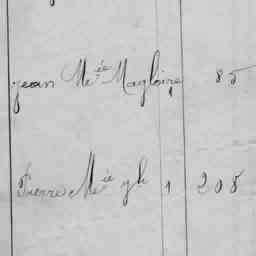 Jean M.ée Magloire 85
Pierre M.ée gh 1 208